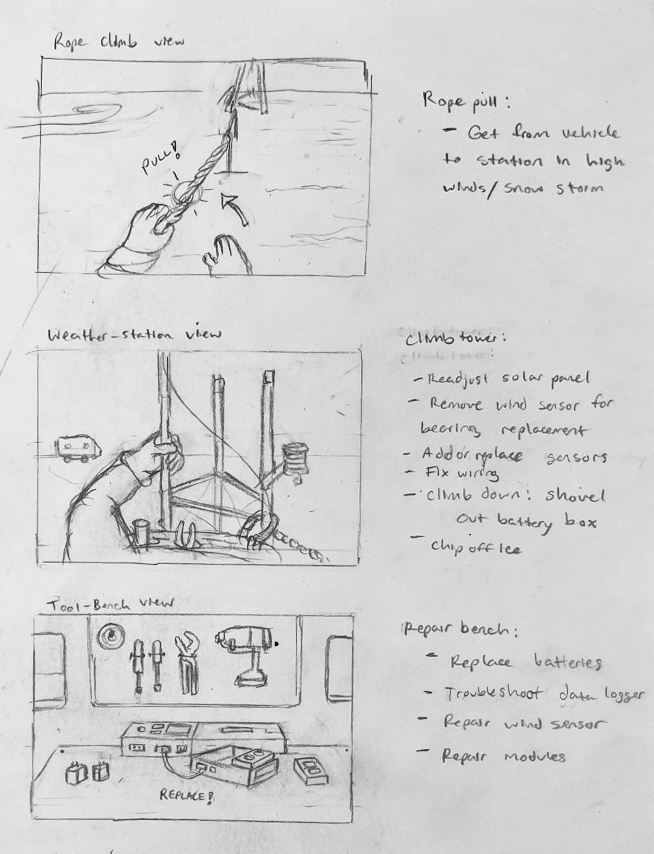 Rope climb view
PULL!
Rope pull:
- Get from vehicle
to station in high
winds/snow storm
Weather-station view
Climb tower:
- Readjust solar panel
- Remove wind sensor for
bearing replacement
- Add or replace sensors
- Fix wiring
- Climb down: shovel
out battery box
- Chip off Ice
Tool-Bench view
REPLACE!
Repair bench:
- Replace batteries
- Troubleshoot data logger
- Repair wind sensor
- Repair modules